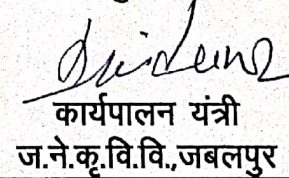 कार्यपालन यंत्री
ज.ने.कृ.वि.वि.,जबलपुर